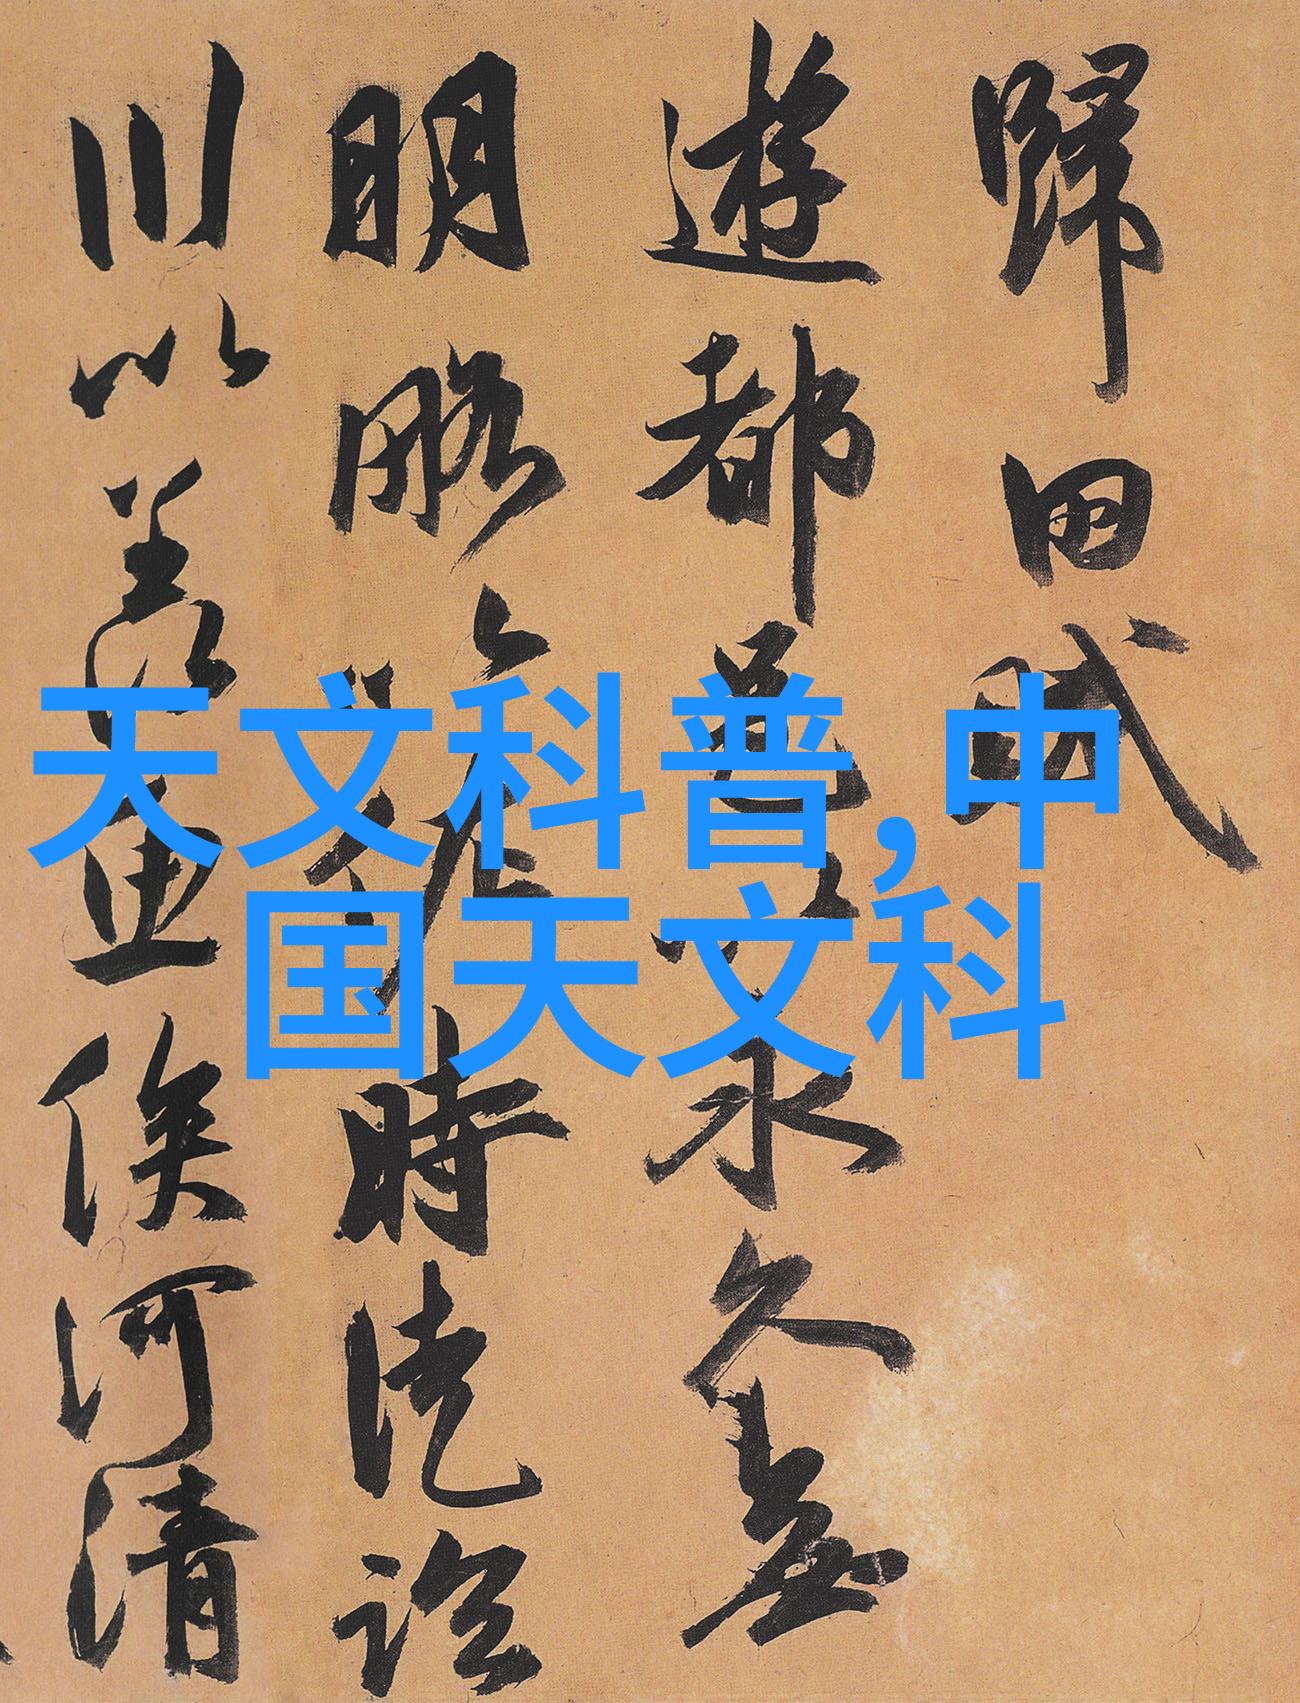 歸田賦
遊都邑以永久無
明略以佐時徒臨
川以羨魚俟河清
天文科普,中
国天文科